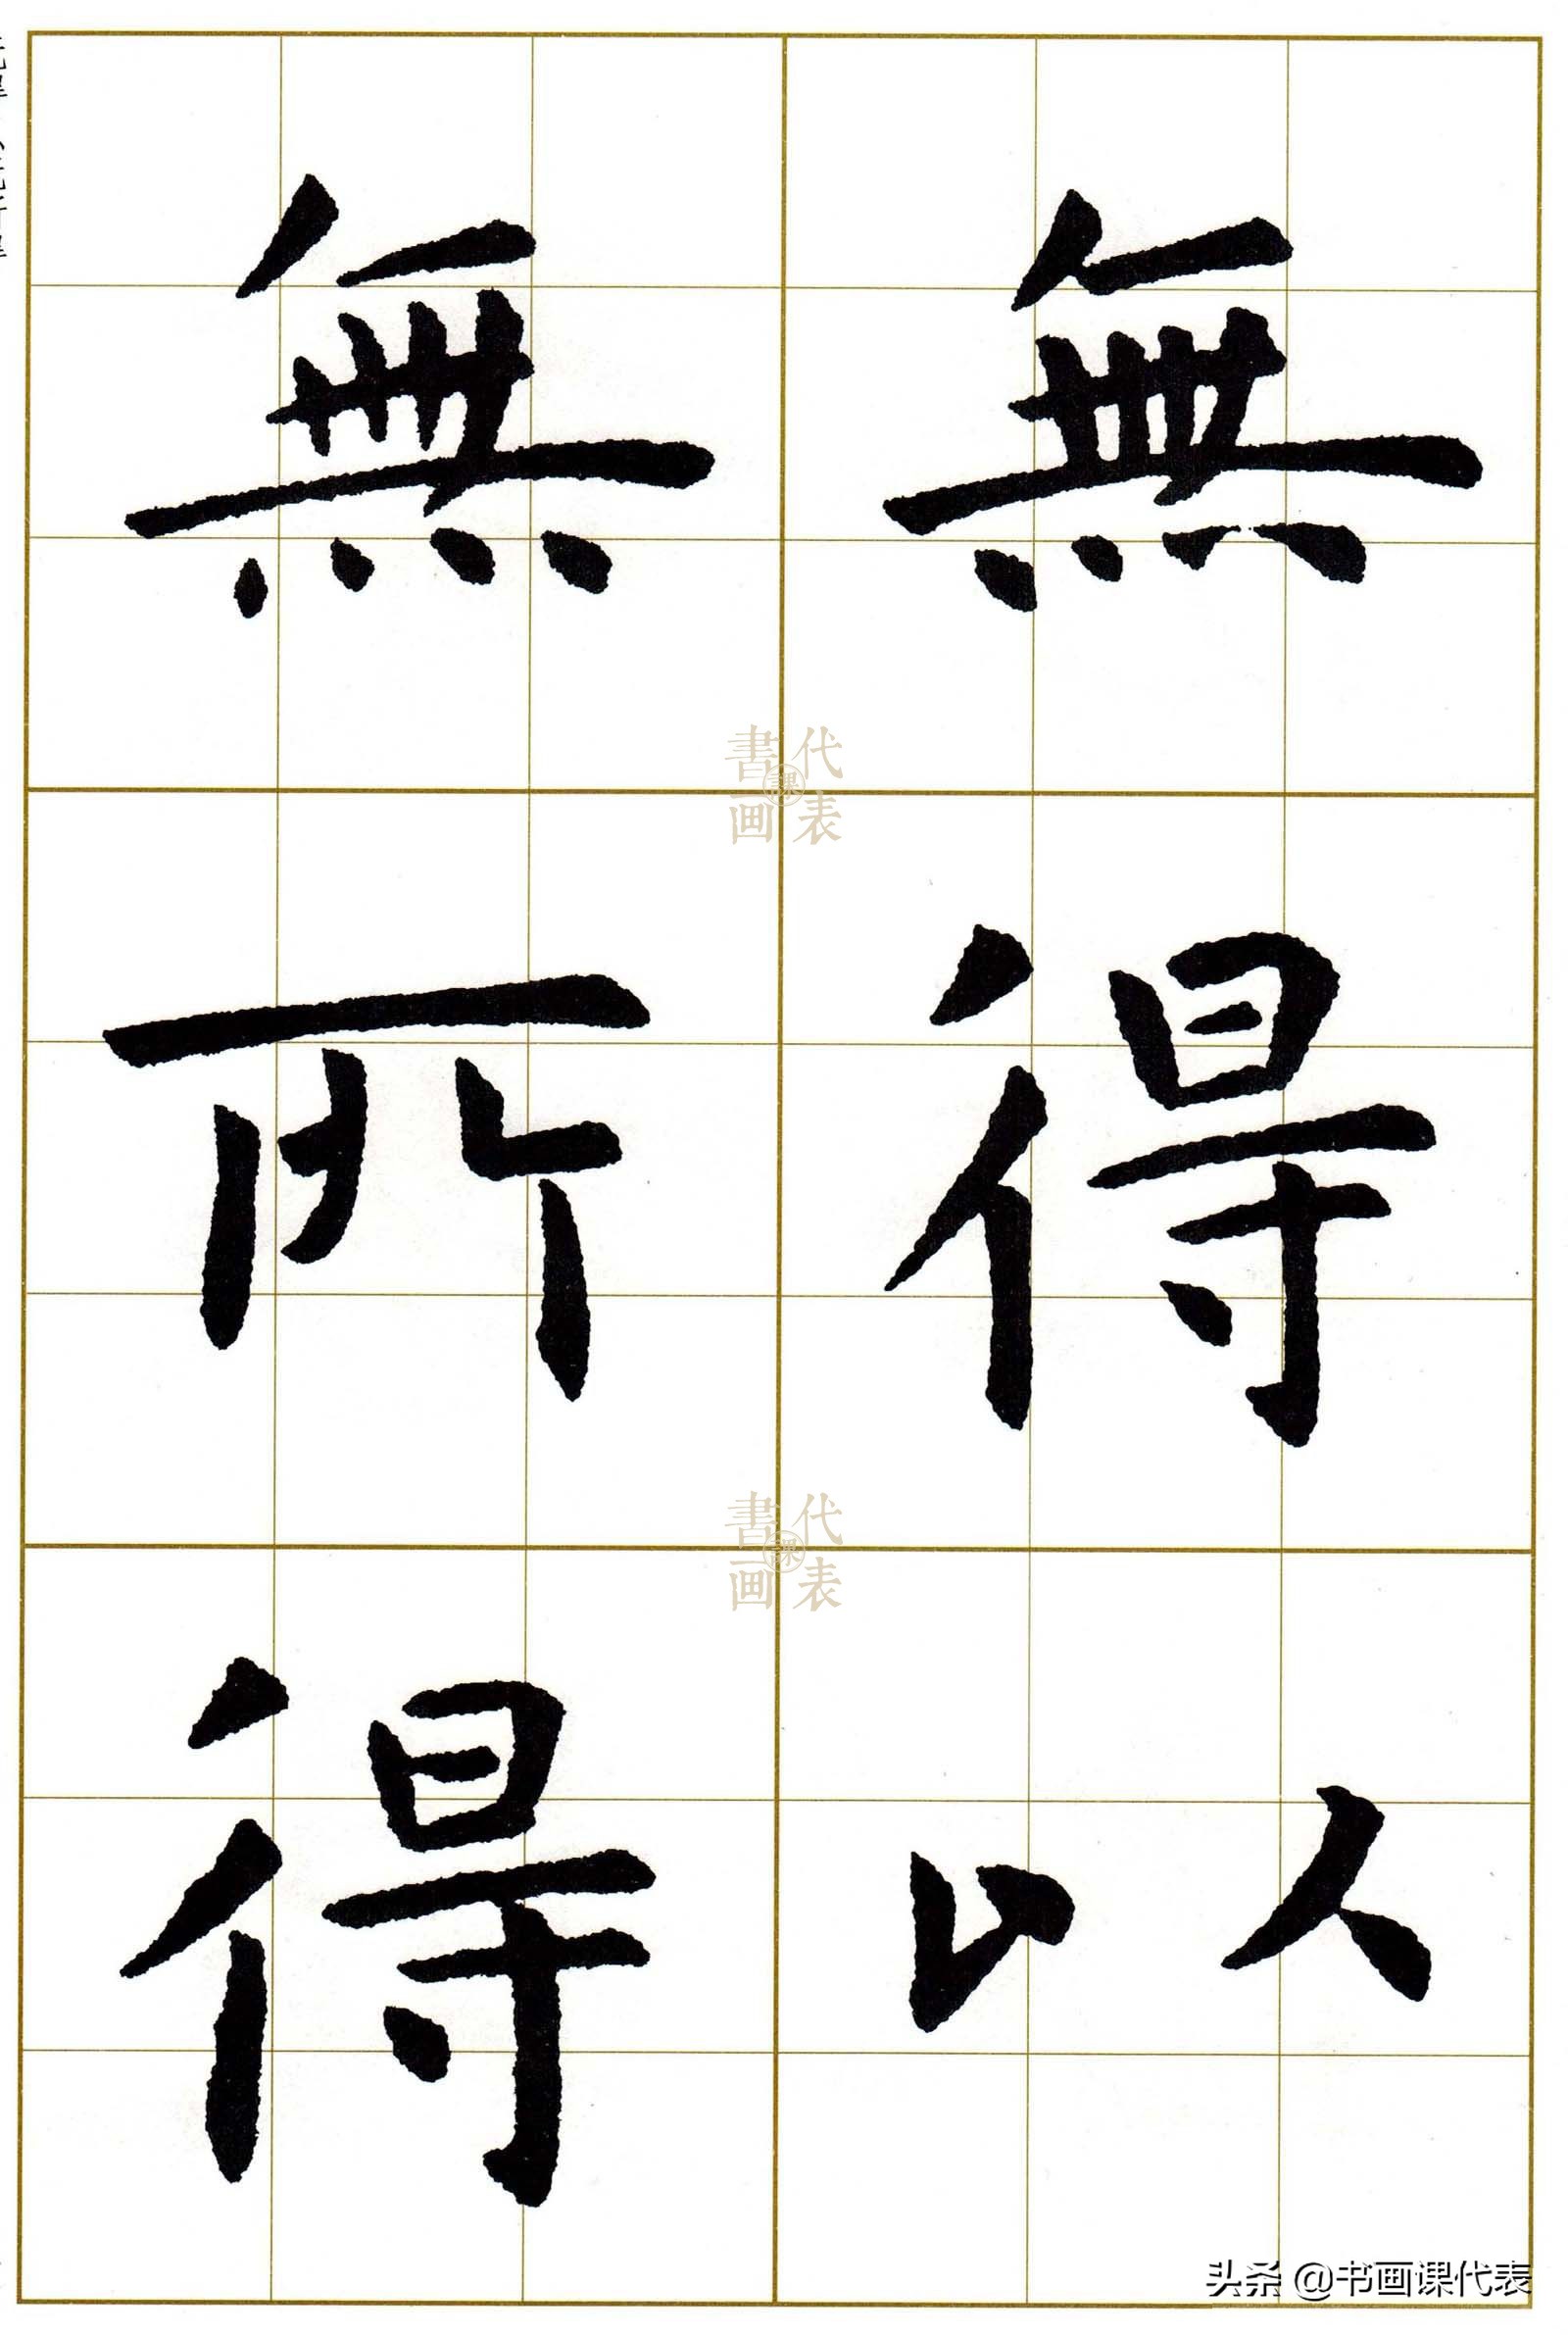 無得以
無所得
書画課代表
書画課代表
头条 @书画课代表